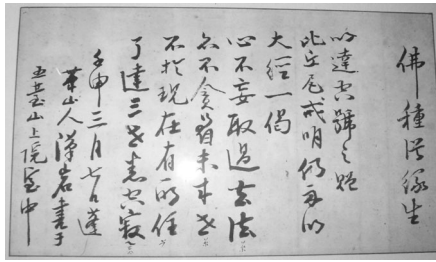 佛種從緣生
以達空號之
比丘尼戒明仍示以
大經一偈
心不妄取過去法
亦不貪着未来世
不於現在有所住
了達三世悉空寂
壬申三月七日蓬
莱山人漢岩書于
五臺山上院室中